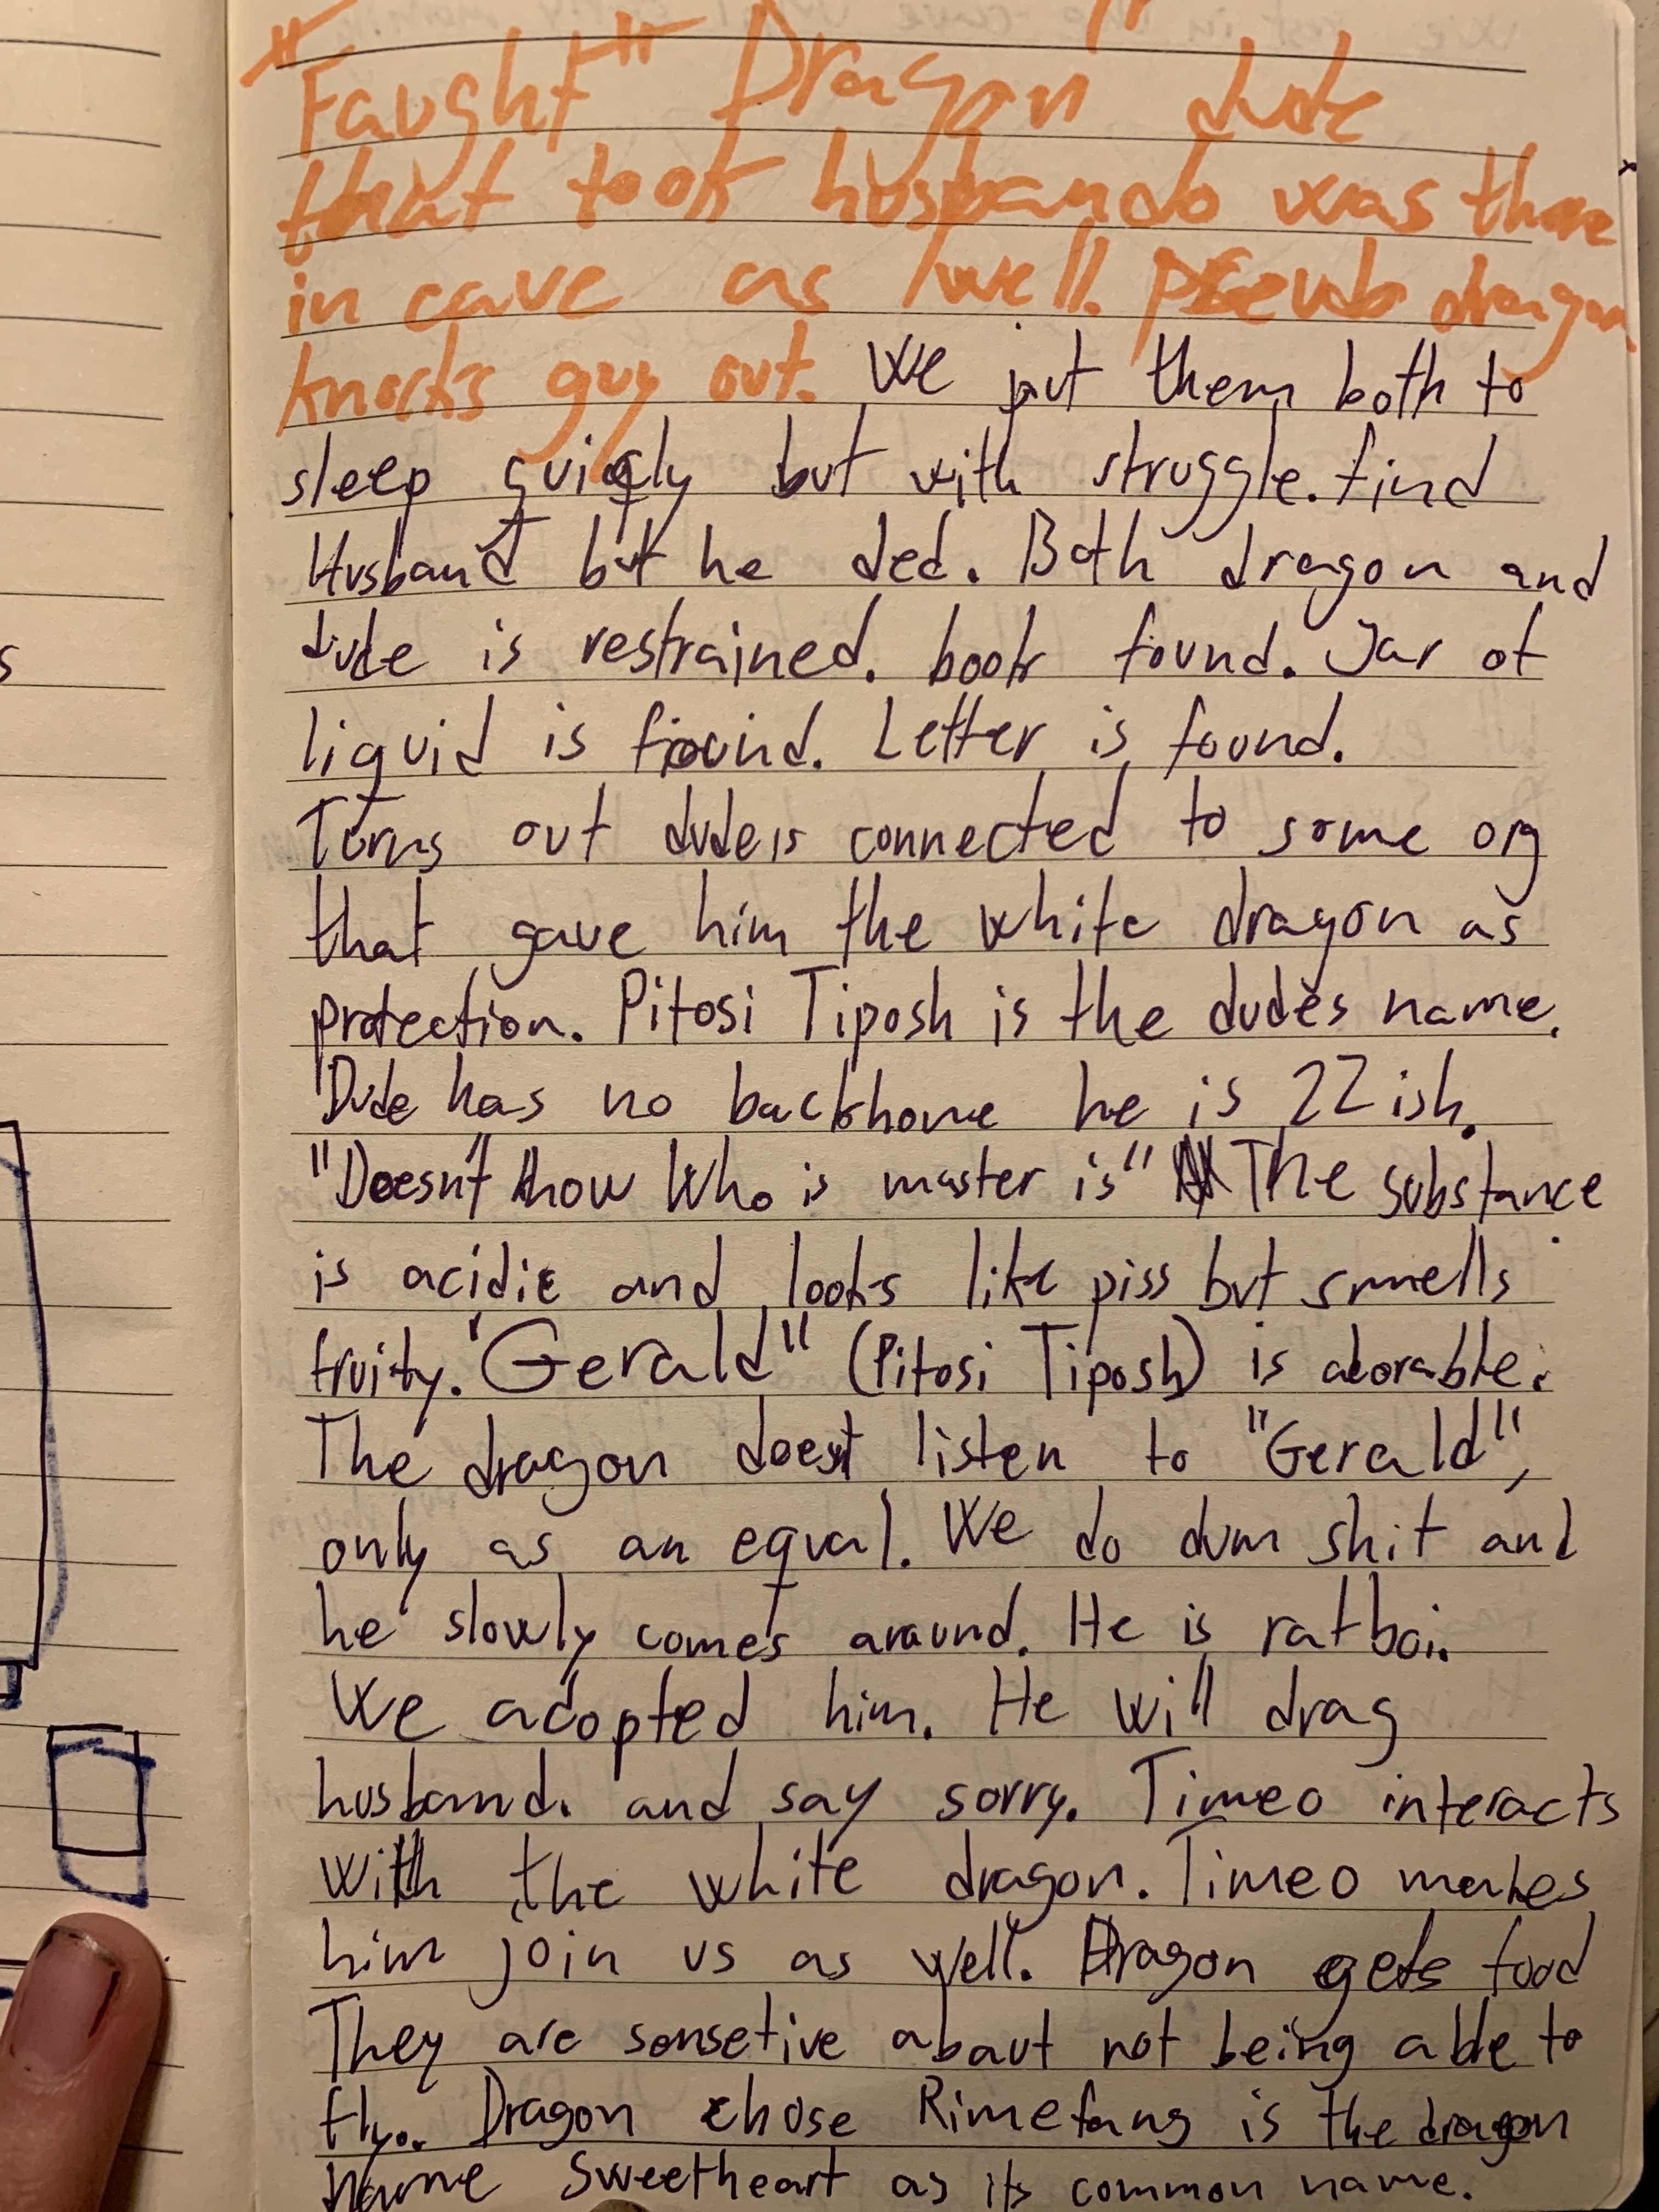 "Faught" Dragon dude
that took husbando was there
in cave as well. Pseudo dragon
knocks guy out. We put them both to
sleep quigly but with struggle. find
Husband but he ded. Both dragon and
dude is restrained. book found. Jar of
liquid is found. Letter is found.
Turns out dude is connected to some org
that gave him the white dragon as
protection. Pitosi Tiposh is the dudes name.
Dude has no backhone he is 22 ish.
"Doesn't know Who is master is" The substance
is acidic and looks like piss but smells
fruity. "Gerald" (Pitosi Tiposh) is adorable.
The dragon doesnt listen to "Gerald",
only as an equal. We do dum shit and
he slowly comes around. He is ratboi.
We adopted him. He will drag
husband. and say sorry. Timeo interacts
With the white dragon. Timeo makes
him join us as well. Dragon gets food
They are sensetive about not being able to
fly. Dragon chose Rimefang is the dragon
name Sweetheart as its common name.
s